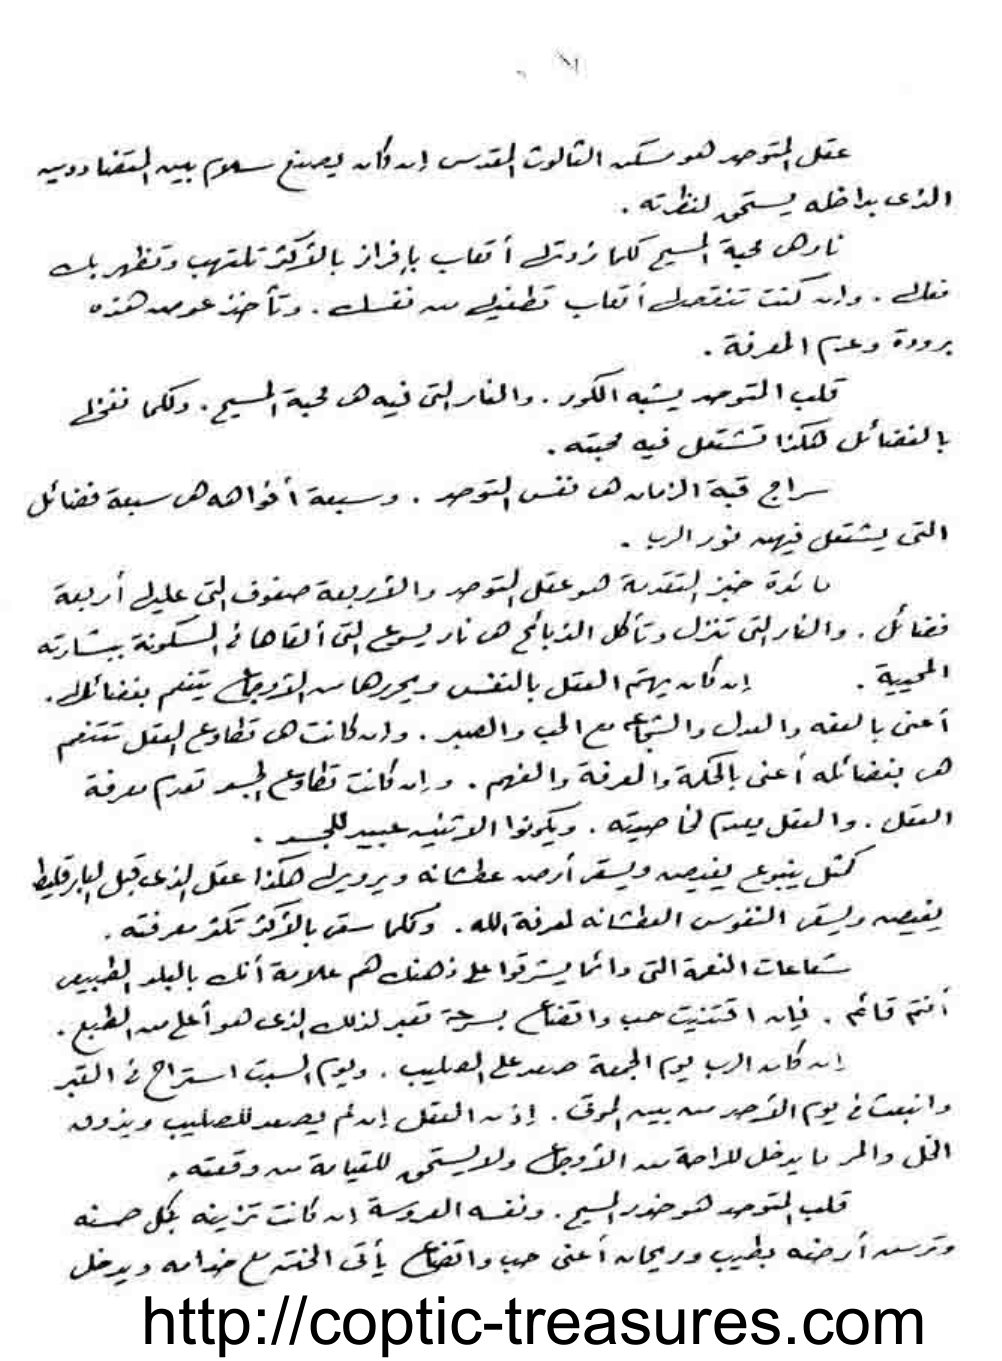 عقل المتوحد هو مسكن الثالوث المقدس إن كان يصنع سلام بين المتضاددين
الذى بداخله يستحق لنظرته .
نار هى محبة المسيح كلما زودتها أتعاب بإفراز بالأكثر تلتهب وتطهر بك
فعالك . وإن كنت تنقصها أتعاب تطفيها من نفسك . وتأخذ عوض هذه
برودة وعدم المعرفة .
قلب المتوحد يشبه الكور . والنار التى فيه هى محبة المسيح . وكلما نفخها
بالفضائل هكذا تشتعل فيه محبته .
سراج قبة الزمان هى نفس المتوحد . وسبعة أفواهه هى سبعة فضائل
التى يشتعل فيهن نور الرب .
مائدة خبز التقدمة هو عقل المتوحد والأربعة صفوف التى عليها أربعة
فضائل . والنار التى تنزل وتأكل الذبائح هى نار يسوع التى ألقاها فى المسكونة ببشارته
المحيية . إن كان يهتم العقل بالنفس ويحررها من الأوجاع يتنعم بفضائلها .
أعنى بالعفه والعدل والشجاعه مع الحب والصبر . وإن كانت هى تطاوع العقل تتنعم
هى بفضائله أعنى بالحكمة والمعرفة والفهم . وإن كانت تطاوع الجسد تعدم معرفة
العقل . والعقل يعدم خاصيته . ويكونوا الاثنين عبيد للجسد .
كمثل ينبوع يفيض ويسقى أرض عطشانه ويرويها هكذا عقل الذى قبل البارقليط
يفيض ويسقى النفوس العطشانه لمعرفة الله . وكلما سقى بالأكثر تكثر معرفته .
شعاعات النعمة التى دائما يشرقوا على ذهنك هم علامة أنك بالبلد الطبيعى
أنتم قائم . فإن اقتنيت حب واتضاع بسرعة تعبر لذلك الذى هو أعلى من الطبع .
إن كان الرب يوم الجمعة صعد على الصليب . ويوم السبت استراح فى القبر
وانبعث فى يوم الأحد من بين الموتى . إذن العقل إن لم يصعد للصليب ويذوق
الخل والمر ما يدخل للراحة من الأوجاع ولا يستحق للقيامة من وقعته .
قلب المتوحد هو خدر المسيح . ونفسه العروسة إن كانت تزينه بكل حسنه
وترش أرضه بطيب وريحان أعنى حب واتضاع يأتى الختن مع خدامه ويدخل
http://coptic-treasures.com